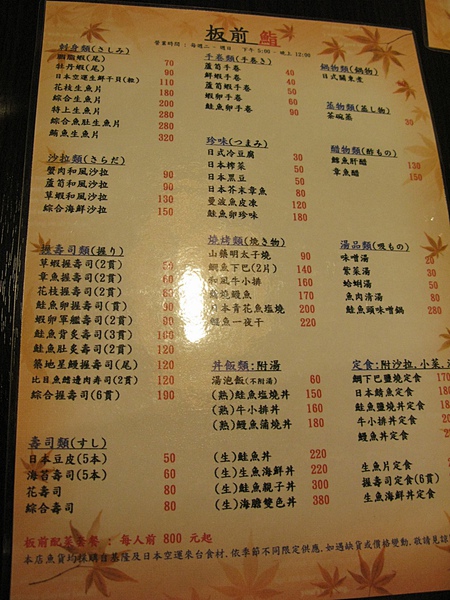 板前 鮨
營業時間：每週二－週日 下午 5:00－晚上 12:00
刺身類(さしみ)
胭脂蝦(尾) 70
牡丹蝦(尾) 90
日本空運生鮮干貝(粒) 110
花枝生魚片 180
綜合生魚片 200
特上生魚片 280
綜合魚肚生魚片 280
鮪魚生魚片 320
沙拉類(さらだ)
蟹肉和風沙拉 90
蘆筍和風沙拉 90
草蝦和風沙拉 130
綜合海鮮沙拉 150
握壽司類(握り)
草蝦握壽司(2貫)
章魚握壽司(2貫) 60
花枝握壽司(2貫)
鮭魚卵握壽司(貫) 90
蝦卵軍艦壽司(2貫)
鮭魚背炙壽司(3貫) 160
鮭魚肚炙壽司(2貫) 120
築地星鰻握壽司(尾) 120
比目魚鰭邊肉壽司(2貫) 120
綜合握壽司(6貫) 190
壽司類(すし)
日本豆皮(5本) 50
海苔壽司(5本) 60
花壽司 80
綜合壽司 80
手卷類(手巻き)
蘆筍手卷 40
鮮蝦手卷 40
蘆蝦手卷 50
蝦卵手卷 60
鮭魚卵手卷 90
珍味(つまみ)
日式冷豆腐 30
日本榨菜 50
日本黑豆 50
日本芥末章魚 80
曼波魚皮凍 120
鮭魚卵珍味 180
燒烤類(焼き物)
山藥明太子燒 90
鯛魚下巴(2片) 140
和風牛小排 160
燒鰻魚 170
日本青花魚塩燒 200
魚一夜干 220
丼飯類:附湯
湯泡飯(不附湯) 60
(熟)鮭魚塩燒丼 150
(熟)牛小排丼 160
(熟)鰻魚蒲燒丼 180
(生)鮭魚丼 220
(生)生魚海鮮丼 220
(生)鮭魚親子丼 300
(生)海膽雙色丼 380
鍋物類(鍋物)
日式關東煮
蒸物類(蒸し物)
茶碗蒸 30
醋物類(酢もの)
鱈魚肝醋 130
章魚醋 150
湯品類(吸もの)
味噌湯 20
紫菜湯 30
蛤蜊湯 50
魚肉清湯 80
鮭魚頭味噌鍋 280
定食:附沙拉.小菜.
鯛下巴鹽燒定食 170
日本鯖魚定食
鮭魚鹽燒丼定食
牛小排丼定食
鰻魚丼定食
生魚片定食
握壽司定食(6貫)
生魚海鮮丼定食
板前配菜套餐：每人前 800 元起
本店魚貨均採購自基隆及日本空運來台食材.依季節不同限定供應.如遇缺貨或價格變動.敬請見諒